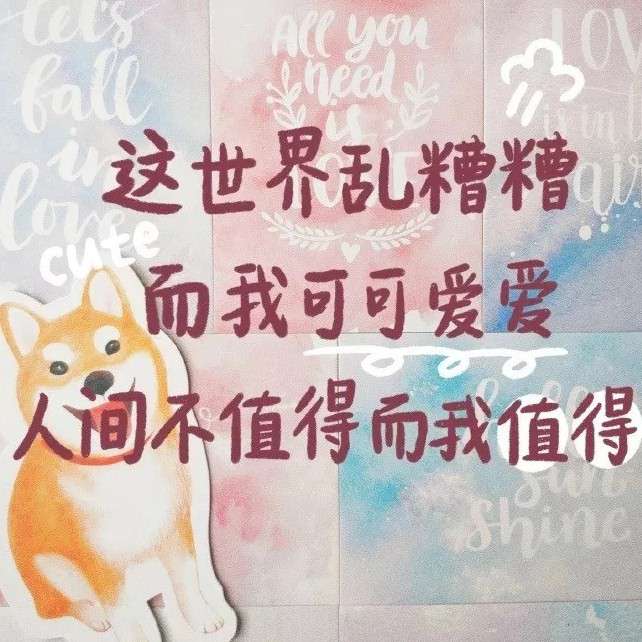 Let's
fall
in
love
All you
need
is
LOVE
is in
air
这世界乱糟糟
cute
而我可可爱爱
人间不值得而我值得
sun
shine